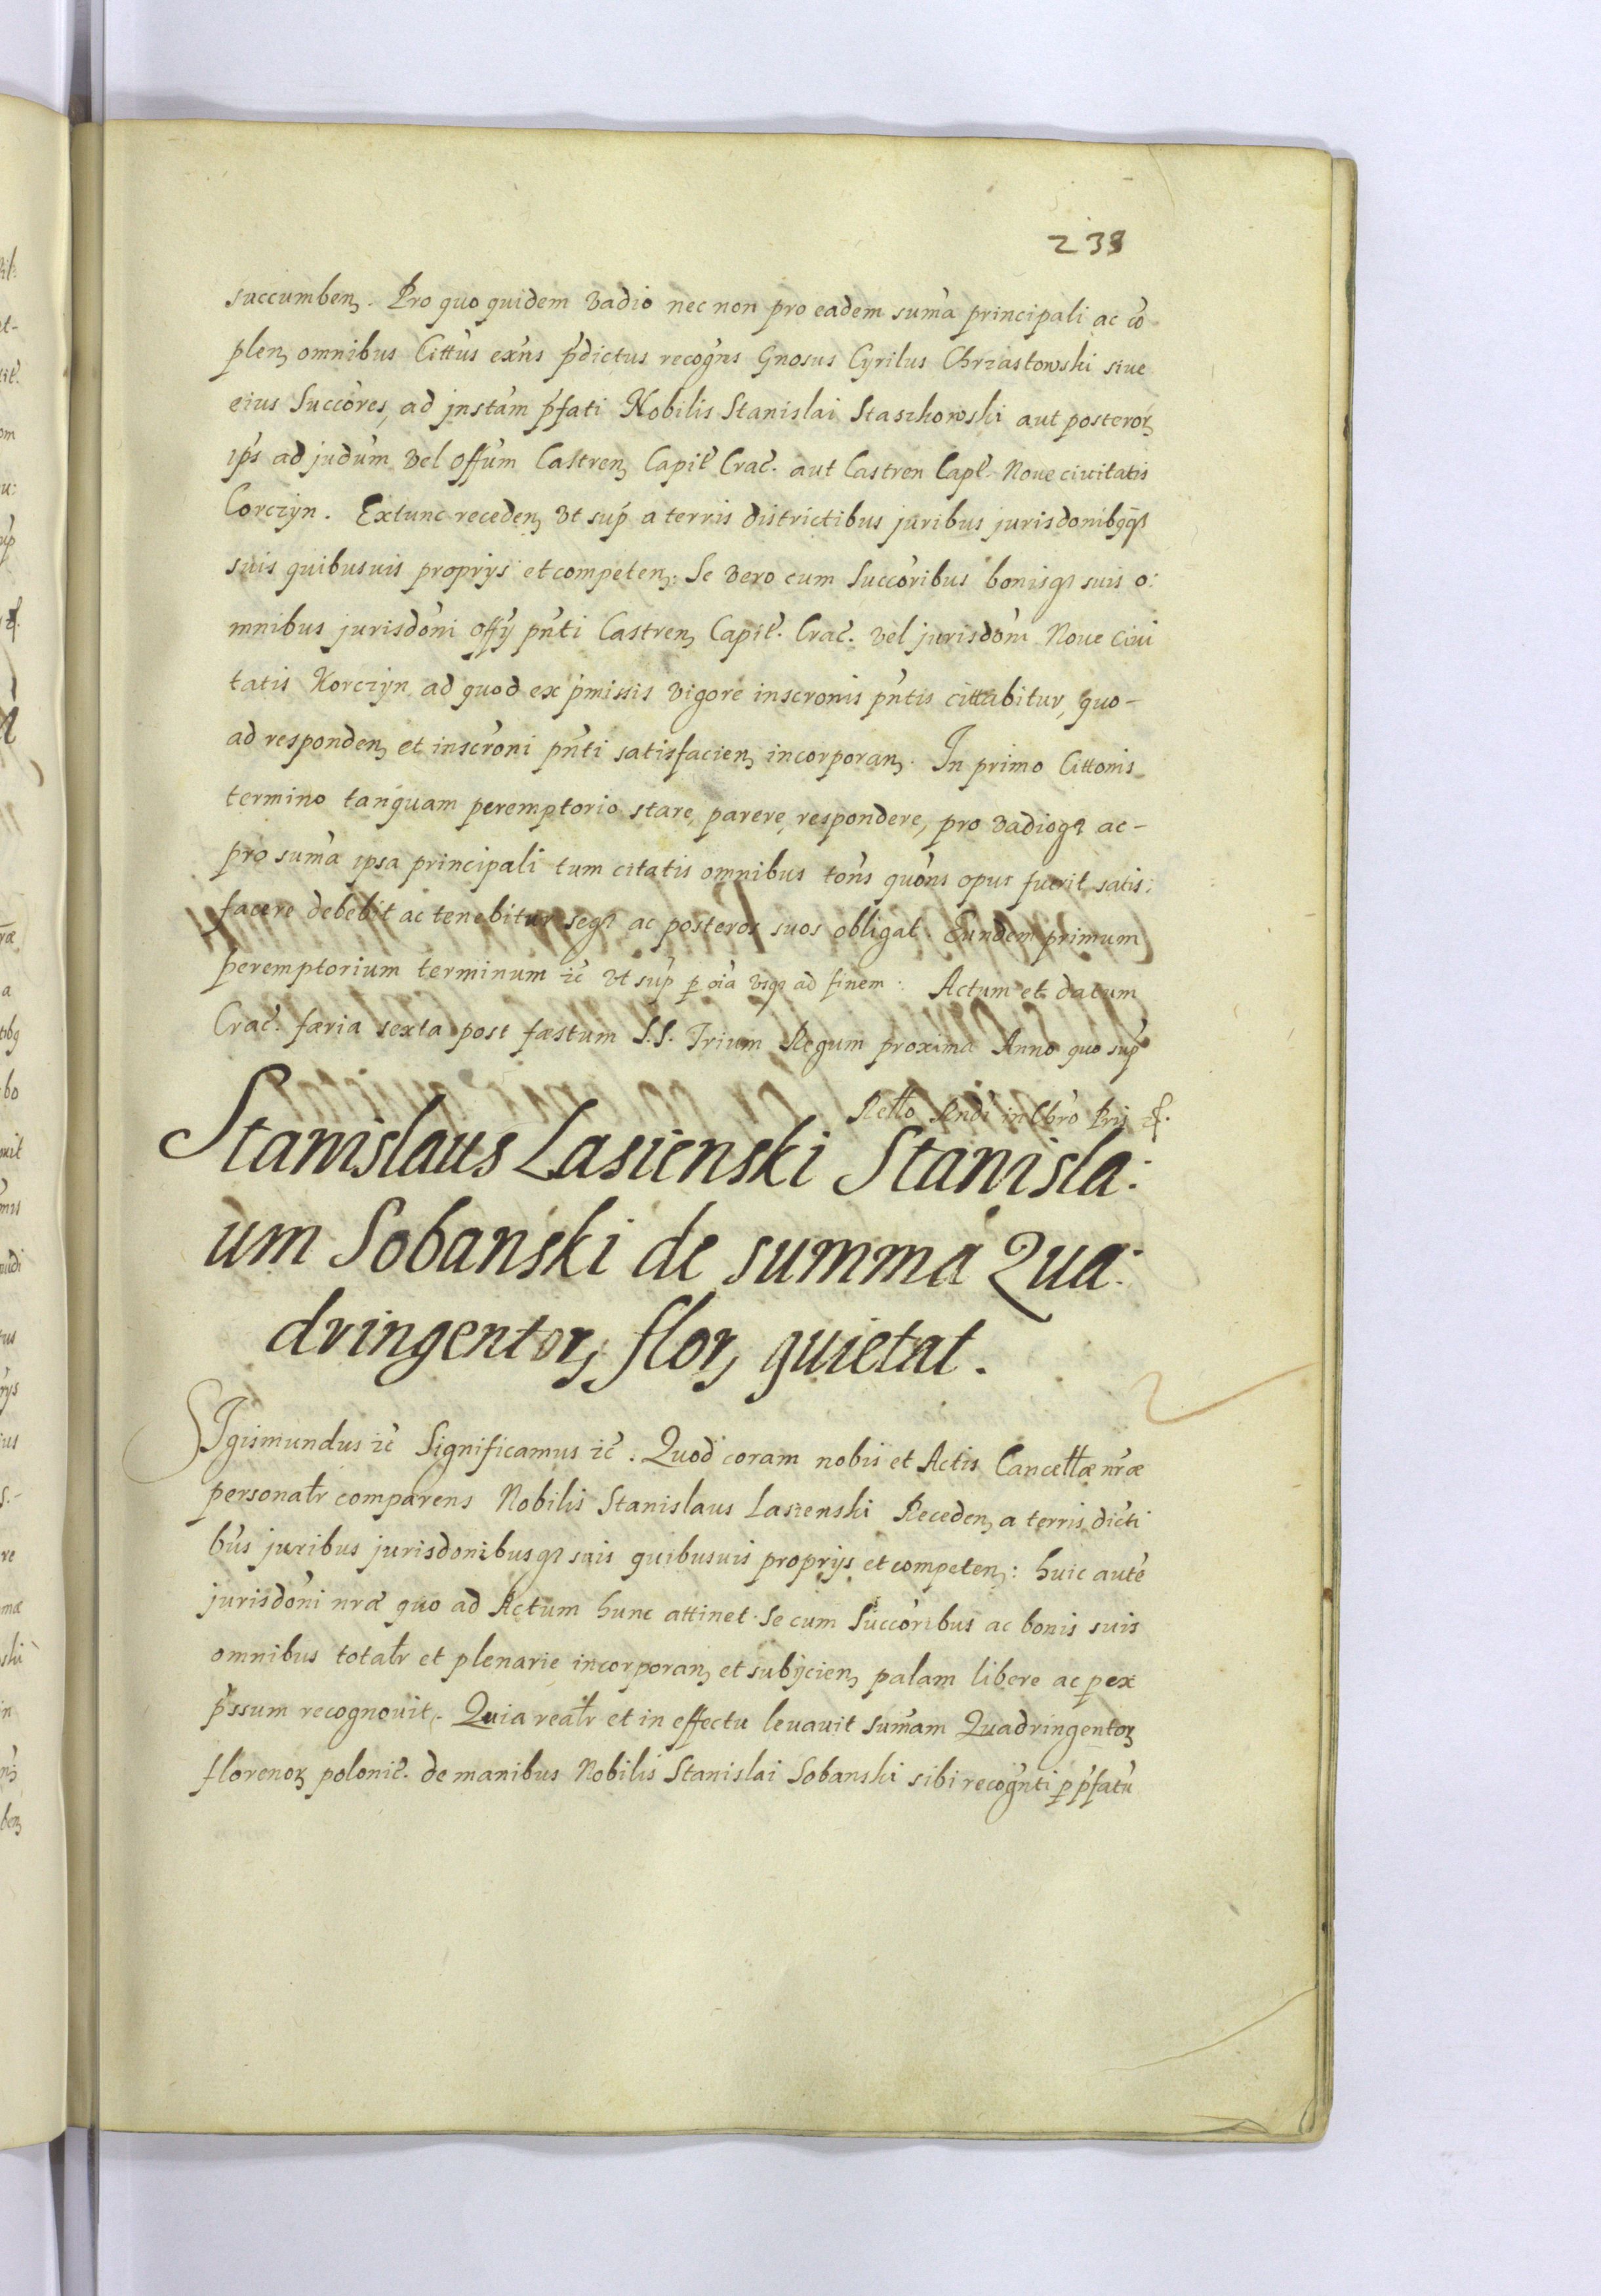 239
succumben. Pro quo quidem vadio nec non pro eadem suma principali ac co
plen omnibus Cittus exns pdictus recogns Gnosus Cyrilus Chrzastowski siue
eius Succores, ad jnstam pfati Nobilis Stanislai Staszkowski aut posteror
ips ad judum vel offum Castren Capit Crac. aut Castren Capt. Noue ciuitatis
Corczyn. Extunc receden vt sup a terris districtibus juribus jurisdonibqq
suis quibusuis proprijs et competen: Se vero cum Succoribus bonisq suis o:
mnibus jurisdoni offy pnti Castren Capit. Crac. vel jurisdom Noue Ciui
tatis Korczyn ad quod ex pmissis vigore inscronis pntis cittabitur, quo-
ad responden et inscroni pnti satisfacien incorporan. In primo Cittonis
termino tanquam peremptorio stare, parere, respondere, pro vadioq ac-
pro suma ipsa principali tum citatis omnibus tons quons opus fuerit satis:
facere debebit ac tenebitur seq ac posteros suos obligat. Eundem primum
peremptorium terminum zc vt sup p oia vsq ad finem. Actum et datum
Crac. faeria sexta post faestum S.S. Trium Regum proxima Anno quo sup
Retto Rndi in Cbro Pris
Stanislaus Lasienski Stanisla:
um Sobanski de summa Qua:
dringentor flor quietat.
SJgismundus zc Significamus zc. Quod coram nobis et Actis Cancellae nrae
personalr comparens Nobilis Stanislaus Lasienski Receden a terris dicti
bus juribus jurisdonibusq suis quibusuis proprijs et competen: huic aute
jurisdoni nrae quo ad Actum hunc attinet Se cum Succoribus ac bonis suis
omnibus totalr et plenarie incorporan et subijcien palam libere ac p ex
pssum recognouit. Quia realr et in effectu leuauit sumam Quadringentor
florenor polonic. de manibus Nobilis Stanislai Sobanski sibi recognti p pfatu